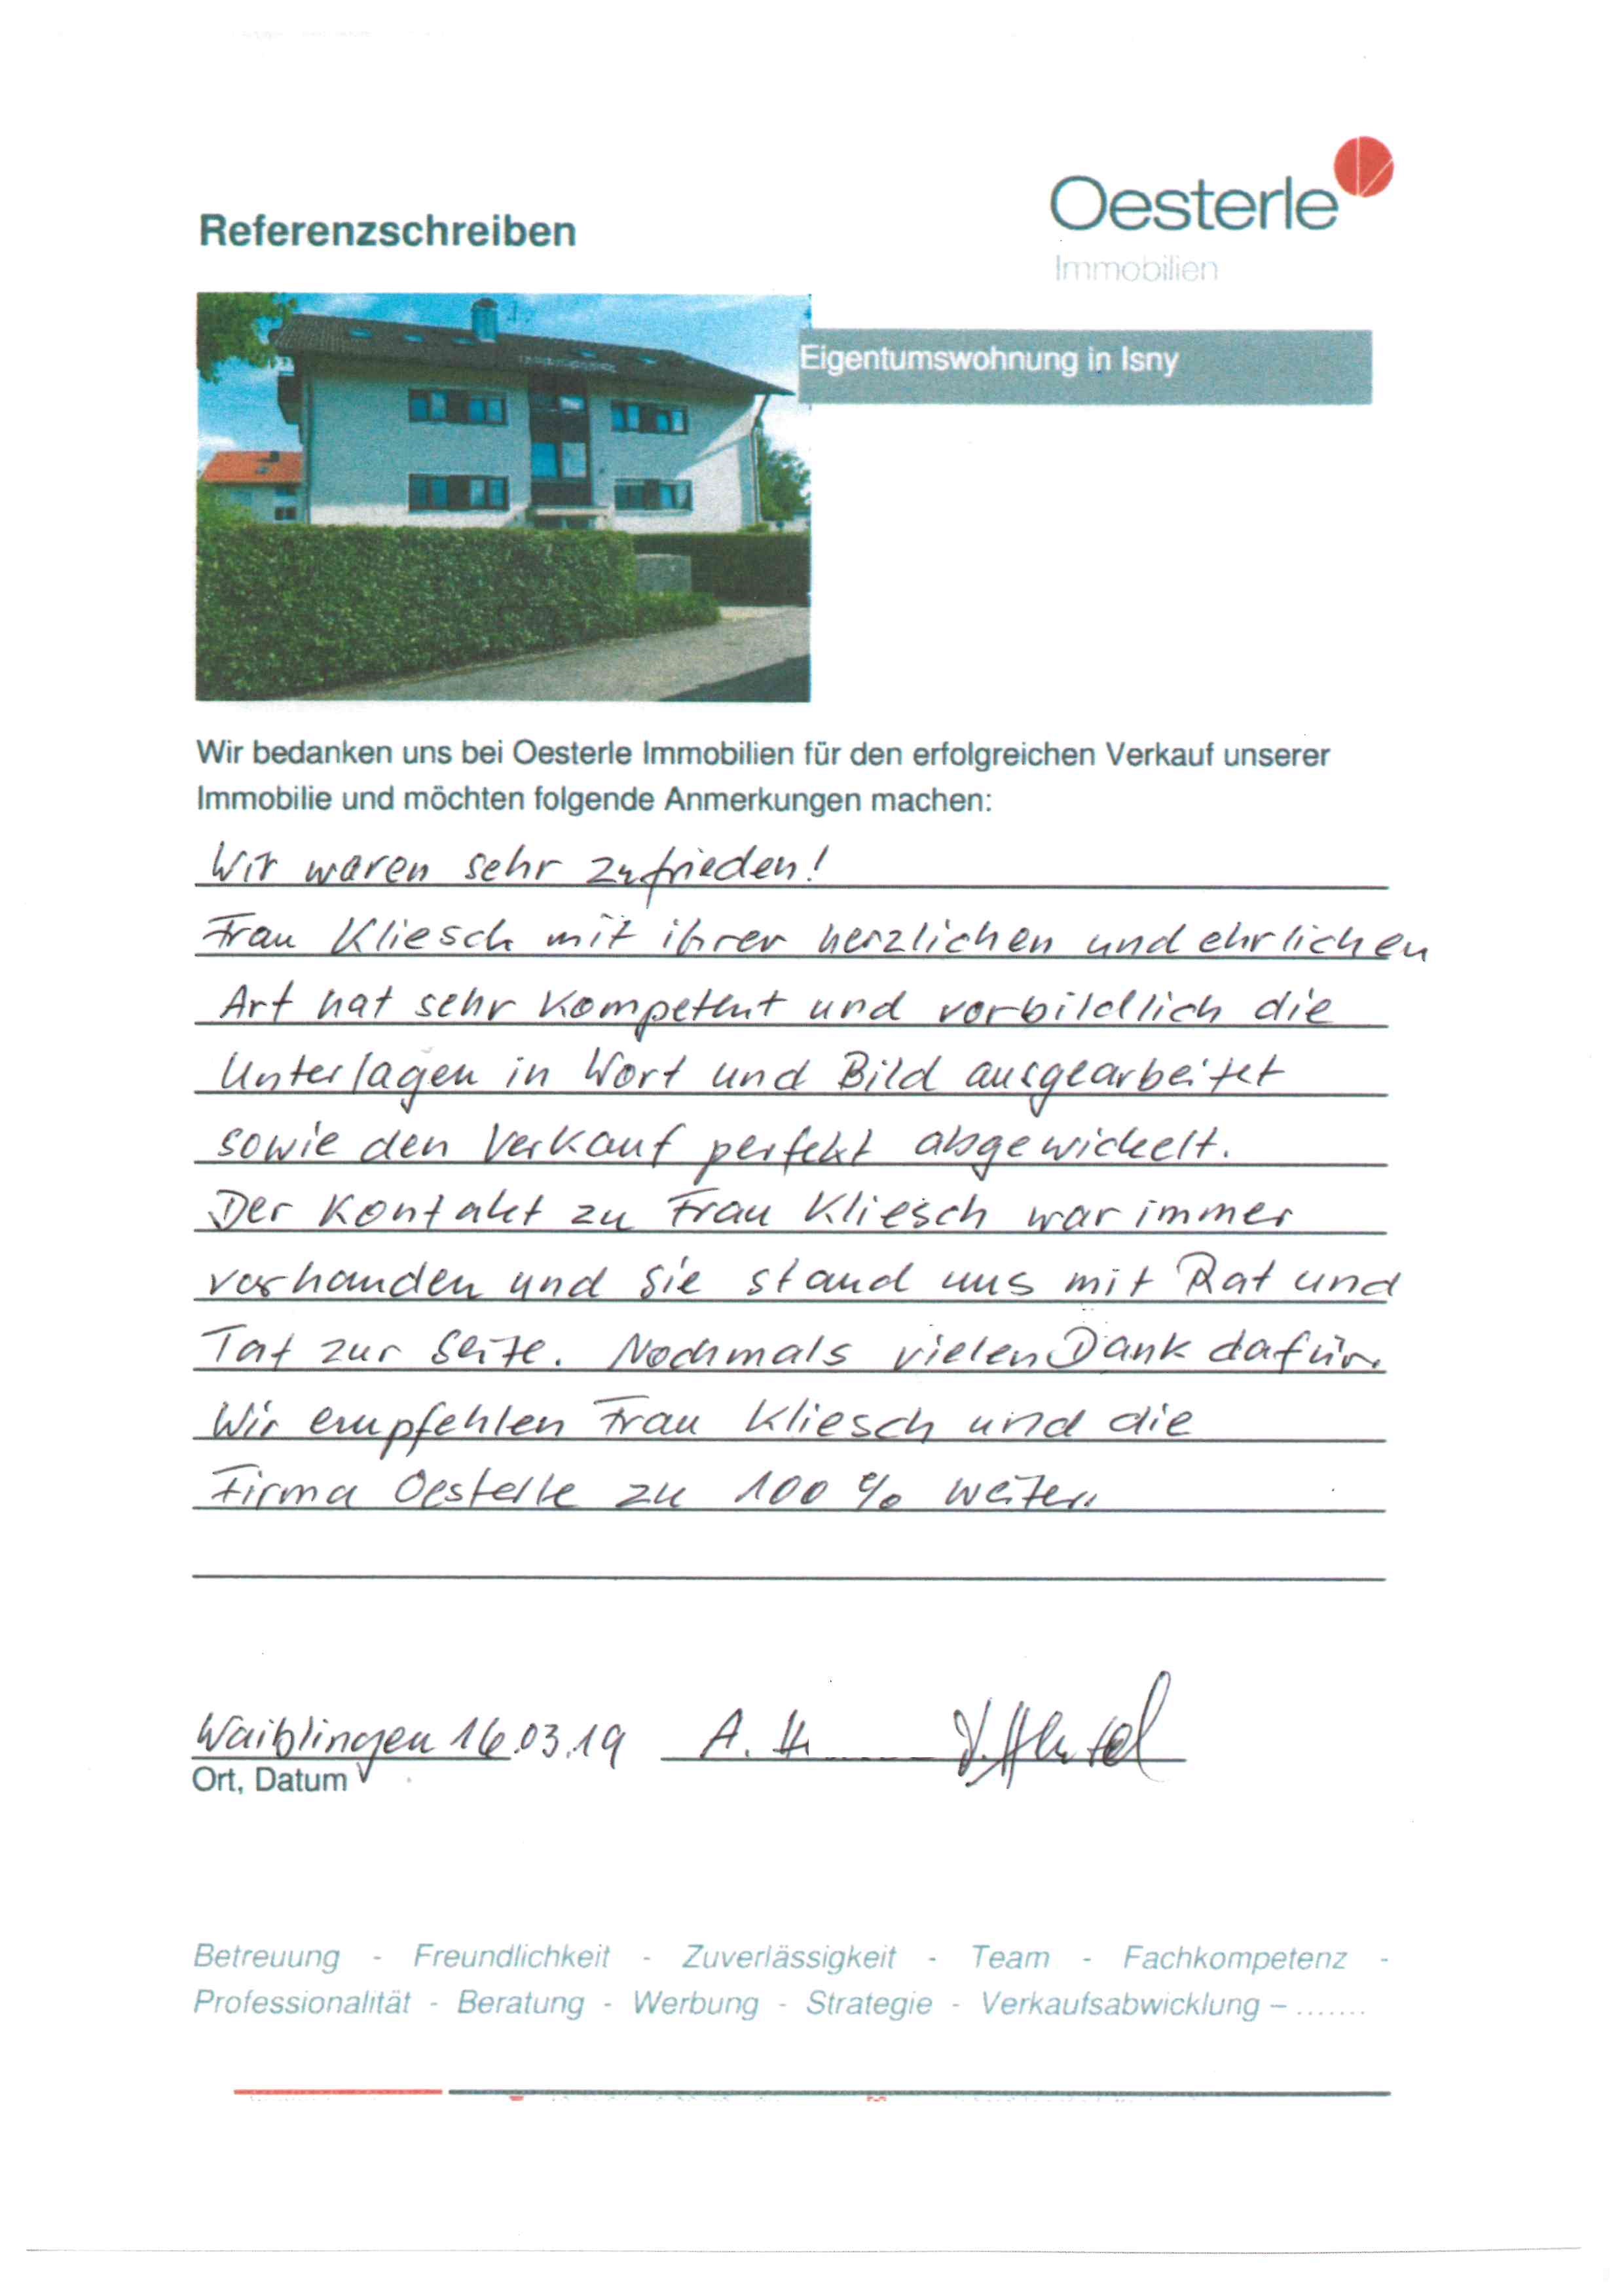 Oesterle
Referenzschreiben
Immobilien
Eigentumswohnung in Isny
Wir bedanken uns bei Oesterle Immobilien für den erfolgreichen Verkauf unserer
Immobilie und möchten folgende Anmerkungen machen:
Wir waren sehr zufrieden!
Frau Kliesch mit ihrer herzlichen und ehrlichen
Art hat sehr kompetent und vorbildlich die
Unterlagen in Wort und Bild ausgearbeitet
sowie den Verkauf perfekt abgewickelt.
Der Kontakt zu Frau Kliesch war immer
vorhanden und sie stand uns mit Rat und
Tat zur Seite. Nochmals vielen Dank dafür.
Wir empfehlen Frau Kliesch und die
Firma Oesterle zu 100 % weiter.
Waiblingen 16.03.19 A.
Ort, Datum
Betreuung - Freundlichkeit - Zuverlässigkeit - Team - Fachkompetenz -
Professionalität - Beratung - Werbung - Strategie - Verkaufsabwicklung – .......